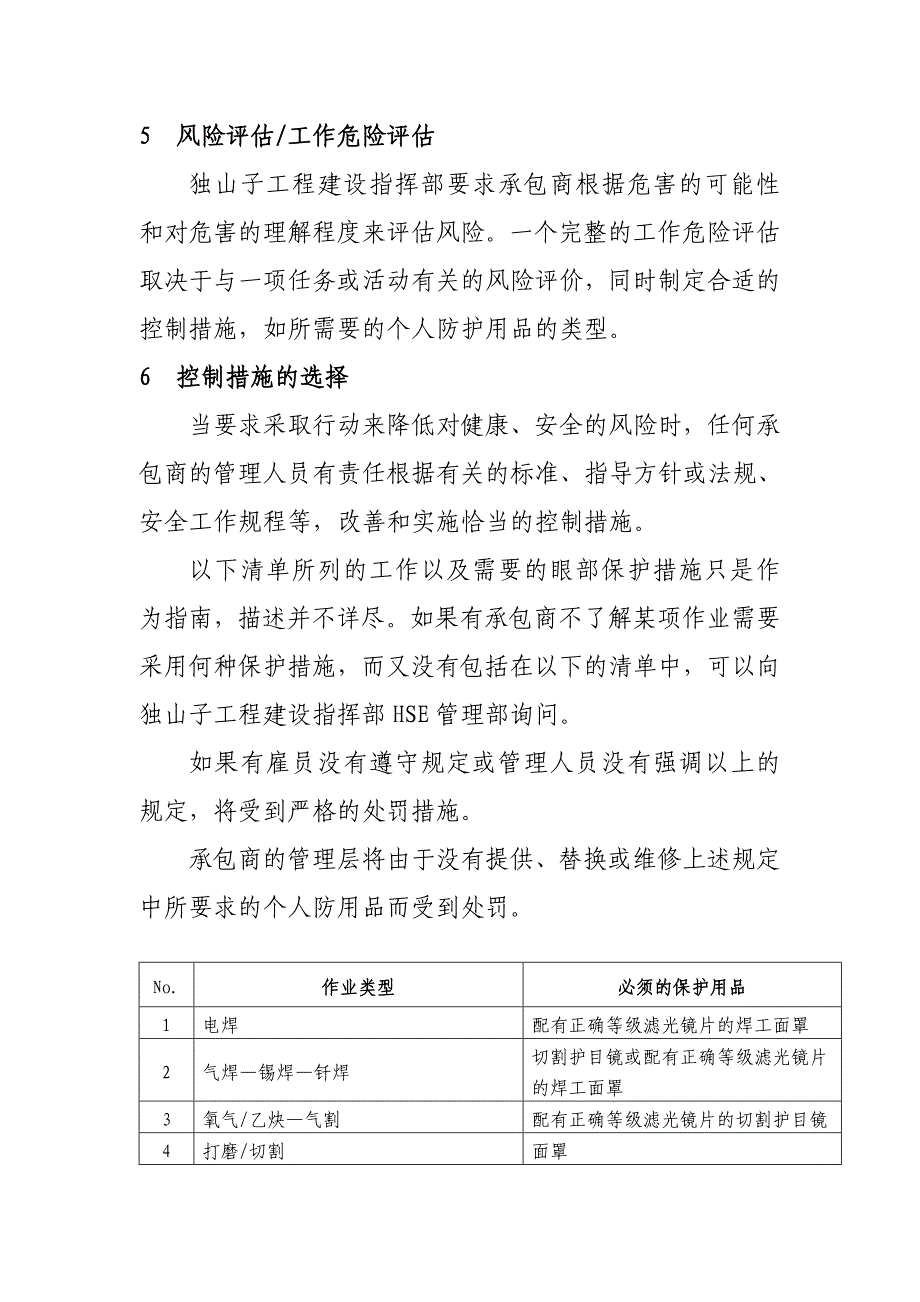 5 风险评估/工作危险评估
独山子工程建设指挥部要求承包商根据危害的可能性
和对危害的理解程度来评估风险。一个完整的工作危险评估
取决于与一项任务或活动有关的风险评价，同时制定合适的
控制措施，如所需要的个人防护用品的类型。
6 控制措施的选择
当要求采取行动来降低对健康、安全的风险时，任何承
包商的管理人员有责任根据有关的标准、指导方针或法规、
安全工作规程等，改善和实施恰当的控制措施。
以下清单所列的工作以及需要的眼部保护措施只是作
为指南，描述并不详尽。如果有承包商不了解某项作业需要
采用何种保护措施，而又没有包括在以下的清单中，可以向
独山子工程建设指挥部 HSE 管理部询问。
如果有雇员没有遵守规定或管理人员没有强调以上的
规定，将受到严格的处罚措施。
承包商的管理层将由于没有提供、替换或维修上述规定
中所要求的个人防用品而受到处罚。
No. 作业类型 必须的保护用品
1 电焊 配有正确等级滤光镜片的焊工面罩
2 气焊—锡焊—钎焊 切割护目镜或配有正确等级滤光镜片
的焊工面罩
3 氧气/乙炔—气割 配有正确等级滤光镜片的切割护目镜
4 打磨/切割 面罩